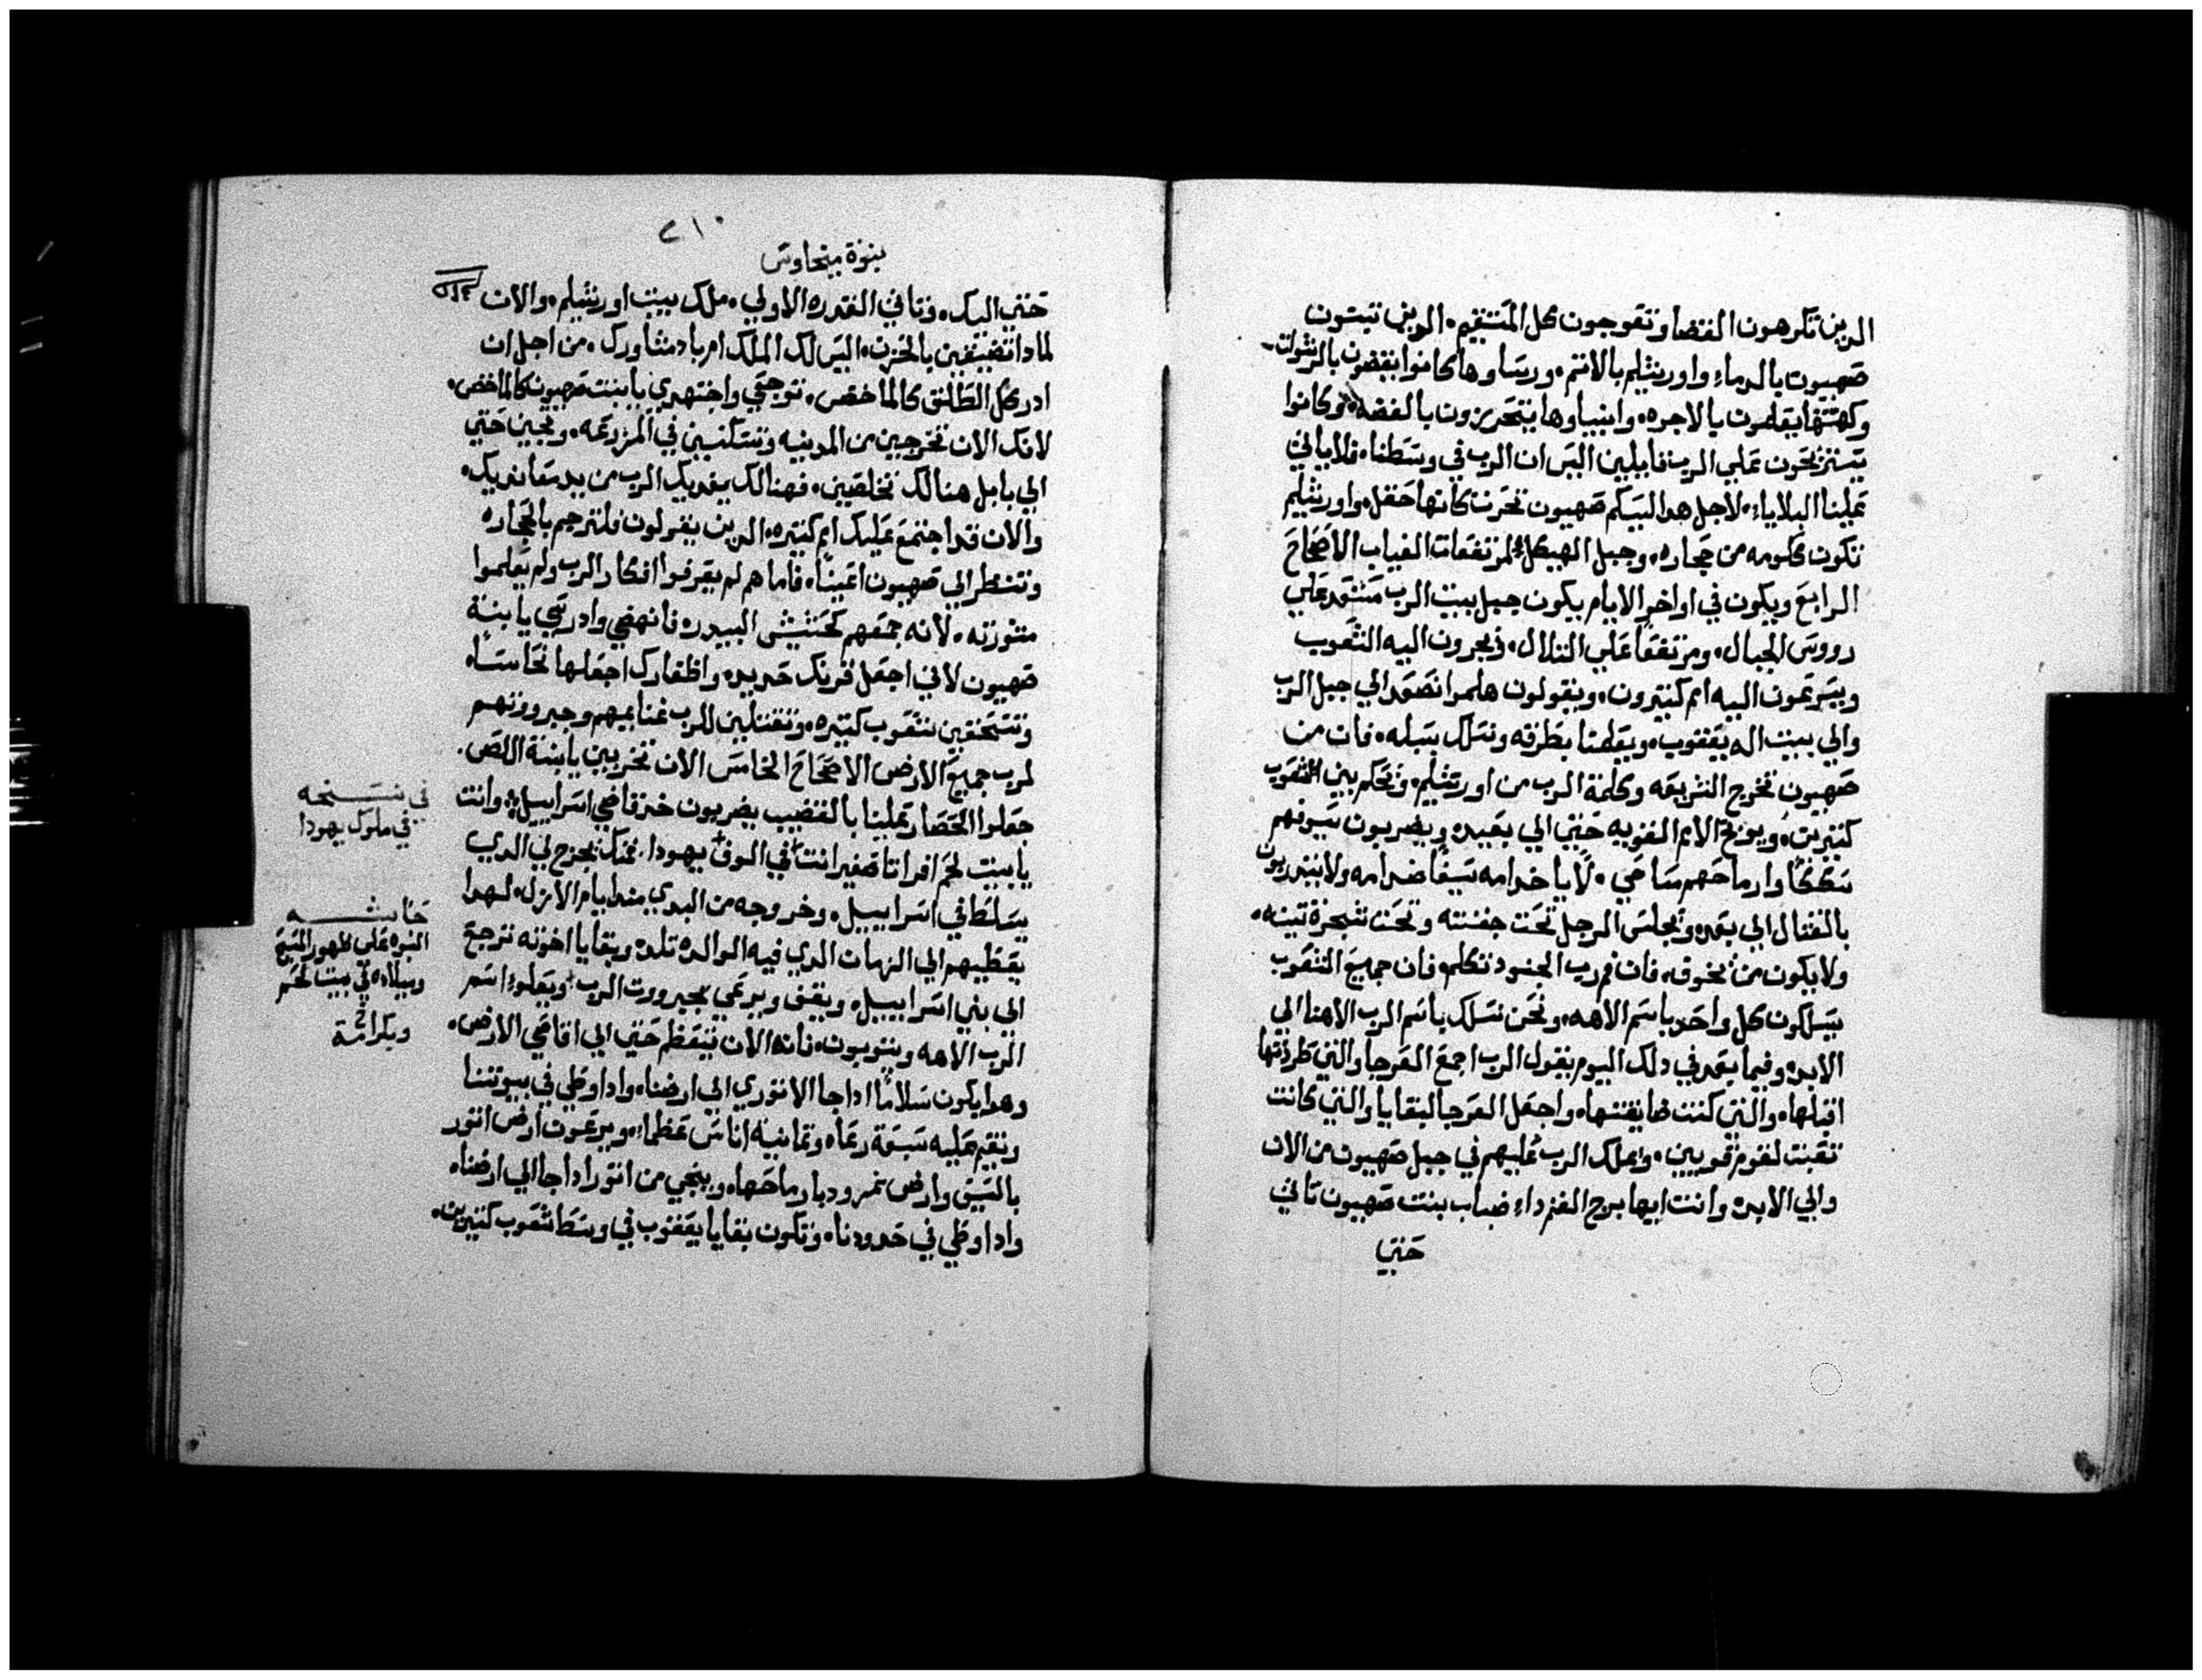 الدين تكرهون القضا وتعوجون كل المستقيم. الدين تبنون
صهيون بالدماء واورشليم بالاتم. وريساوها كانوا يقضون بالرشوات.
وكهنتها يعلمون بالاجره. وانبياوها يتحريزون بالفضه. وكانوا
يستريحون علي الرب قايلين اليس ان الرب في وسطنا. فلا ياتي
علينا البلاياء. لاجل هدا لسببكم صهيون تحرت كانها حقل. واورشليم
تكون ككومه من حجاره. وجبل الهيكل لمرتفعات الغياب الاصحاح
الرابع ويكون في اواخر الايام يكون جبل بيت الرب مستعد علي
رووس الجبال. ومرتفعًا علي التلال. فيجرون اليه الشعوب
ويسرعون اليه امم كتيرون. ويقولون هلموا نصعد الي جبل الرب
والي بيت اله يعقوب. ويعلمنا بطرقه ونسلك بسبله. فان من
صهيون تخرج الشريعه وكلمة الرب من اورشليم. ويحكم بين الشعوب
كتيرين. ويوبخ الامم القويه حتي الي بعيد. ويضربون سيوفهم
سككًا وارماحهم مساحي. لا ياخد امه سيفًا ضد امه ولا يتدربون
بالقتال الي بعد. ويجلس الرجل تحت جفنته وتحت شجرة تينه.
ولا يكون من يخوف. فان فم رب الجنود تكلم. فان جميع الشعوب
يسلكون كل واحد باسم الاهه. ونحن نسلك باسم الرب الاهنا الي
الابد. وفيما بعد في دلك اليوم يقول الرب اجمع العرجا والتي طردتها
اقبلها. والتي كنت ضايقتها. واجعل العرجا لبقايا والتي كانت
تعبت لقوم قويين. ويملك الرب عليهم في جبل صهيون من الان
والي الابد. وانت ايها برج الغنم داء ضباب بنت صهيون تاتي
حتي
٢١٠
نبوة ميخاوس
حتي اليك. وتاتي القدره الاولي. ملك بيت اورشليم. والان
لمادا تضيقين بالحزن. اليس لك الملك امر باد مشاورك. من اجل ان
ادركك الطلق كالماخض. توجعي واجتهدي يا بنت صهيون كالماخض.
لانك الان تخرجين من المدينه وتسكنين في المزرعه. وتجين حتي
الي بابل هنالك تخلصين. فهنالك يفديك الرب من يد معانديك.
والان قد اجتمع عليك امم كتيره. الدين يقولون فلترجم بالحجاره
وتنظر الي صهيون اعيننا. فاما هم لم يعرفوا افكار الرب ولم يعلموا
مشورته. لانه جمعهم كحشيش البيدر. فانهضي وادرسي يا ابنة
صهيون لاني اجعل قرنك حديد. واظفارك اجعلها نحاسًا.
وتسحقين شعوب كتيره. وتقتلين للرب غنايمهم وجبرووتهم
لرب جميع الارض الاصحاح الخامس الان تخربين يا ابنة اللص.
جعلوا الحصار علينا بالقضيب يضربون خد قاضي اسراييل. وانت
يا بيت لحم افراتا صغير انت في الوف يهودا. منك يخرج لي الدي
يسلط في اسراييل. وخروجه من البدي مند ايام الازل. لهدا
يعطيهم الي الزمان الدي فيه الوالده تلد. وبقايا اخوته ترجع
الي بني اسراييل. ويقف ويرعي بجبرووت الرب وبعلو اسم
الرب الاهه ويتوبون. فانه الان يتعظم حتي الي اقاصي الارض.
وهدا يكون سلامًا ادا جا الاتوري الي ارضنا. وادا وطي في بيوتنا
ونقيم عليه سبعة رعاه. وتمانية اناس عظماء. ويرعون ارض اتور
بالسيف وارض نمرود بارماحها. وينجي من اتور ادا جا الي ارضنا.
وادا وطي في حدودنا. وتكون بقايا يعقوب في وسط شعوب كتيرين.
في نسخه
في ملوك يهودا
حاشيه
النبوه علي ظهور المسيح
وميلاده في بيت لحم
وبكرامة